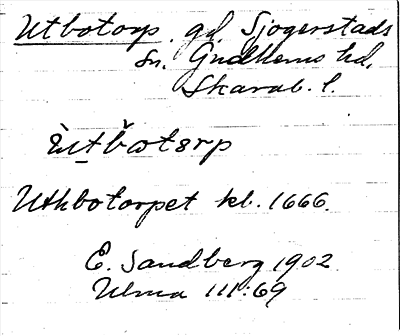 Utbotorp. gd. Sjogerstads
sn. Gudhems hd.
Skarab. l.
ùtbotorp
Uthbotorpet kb. 1666.
E. Sandberg 1902
Ulma 111:69